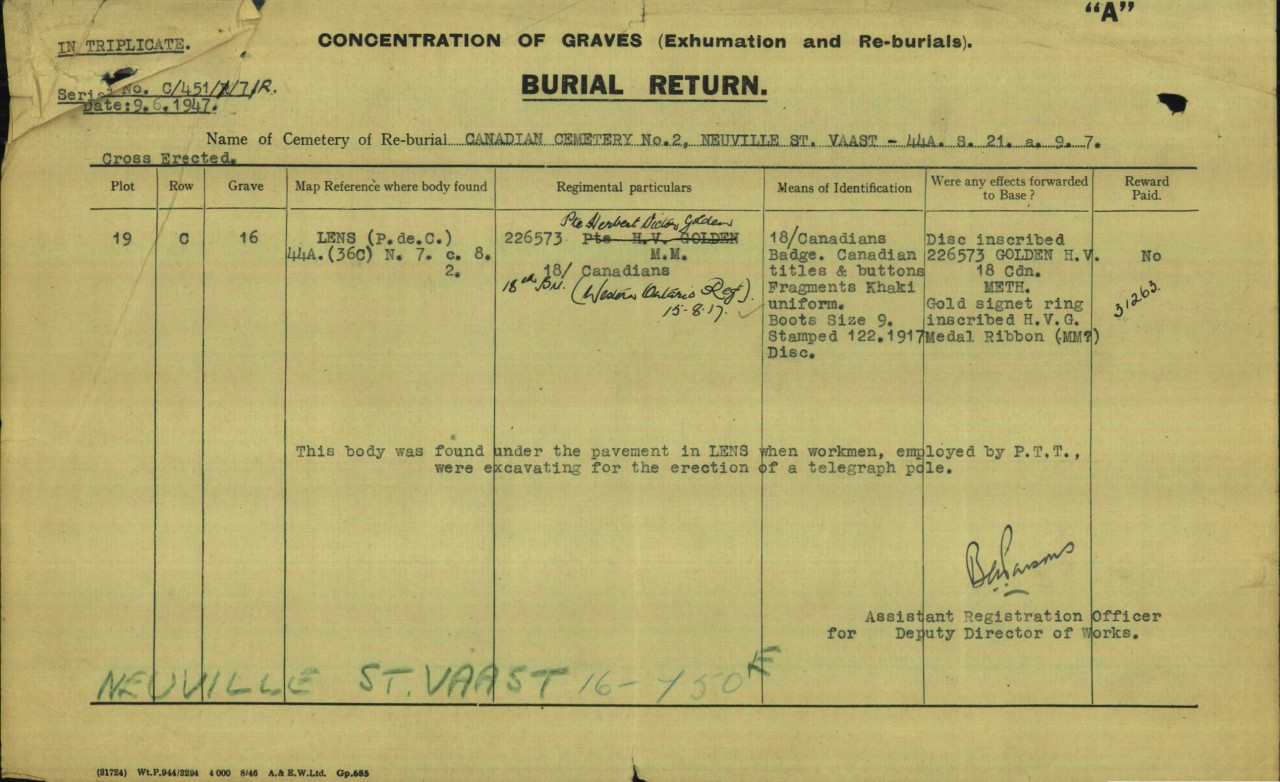 "A"
IN TRIPLICATE.
CONCENTRATION OF GRAVES (Exhumation and Re-burials).
BURIAL RETURN.
Serial No. C/451/1/7/R.
Date: 9.6.1947.
Name of Cemetery of Re-burial CANADIAN CEMETERY No.2, NEUVILLE ST. VAAST - 44A. S. 21. a. 9. 7.
Cross Erected.
Plot Row Grave Map Reference where body found Regimental particulars Means of Identification Were any effects forwarded to Base? Reward Paid.
Pte Herbert Victor Golden
19 C 16 LENS (P.de.C.) 226573 Pte H.V. GOLDEN 18/Canadians Disc inscribed
44A.(36C) N. 7. c. 8. M.M. Badge. Canadian 226573 GOLDEN H.V. No
2. 18/ Canadians titles & buttons 18 Cdn.
18th Bn. (Western Ontario Regt). Fragments Khaki METH.
15-8-17. uniform. Gold signet ring 31263.
Boots Size 9. inscribed H.V.G.
Stamped 122.1917 Medal Ribbon (MM?)
Disc.
This body was found under the pavement in LENS when workmen, employed by P.T.T.,
were excavating for the erection of a telegraph pole.
Parsons
Assistant Registration Officer
for Deputy Director of Works.
NEUVILLE ST. VAAST 16-
(31724) Wt.P.944/3294 4000 8/46 A.& E.W.Ltd. Gp.685